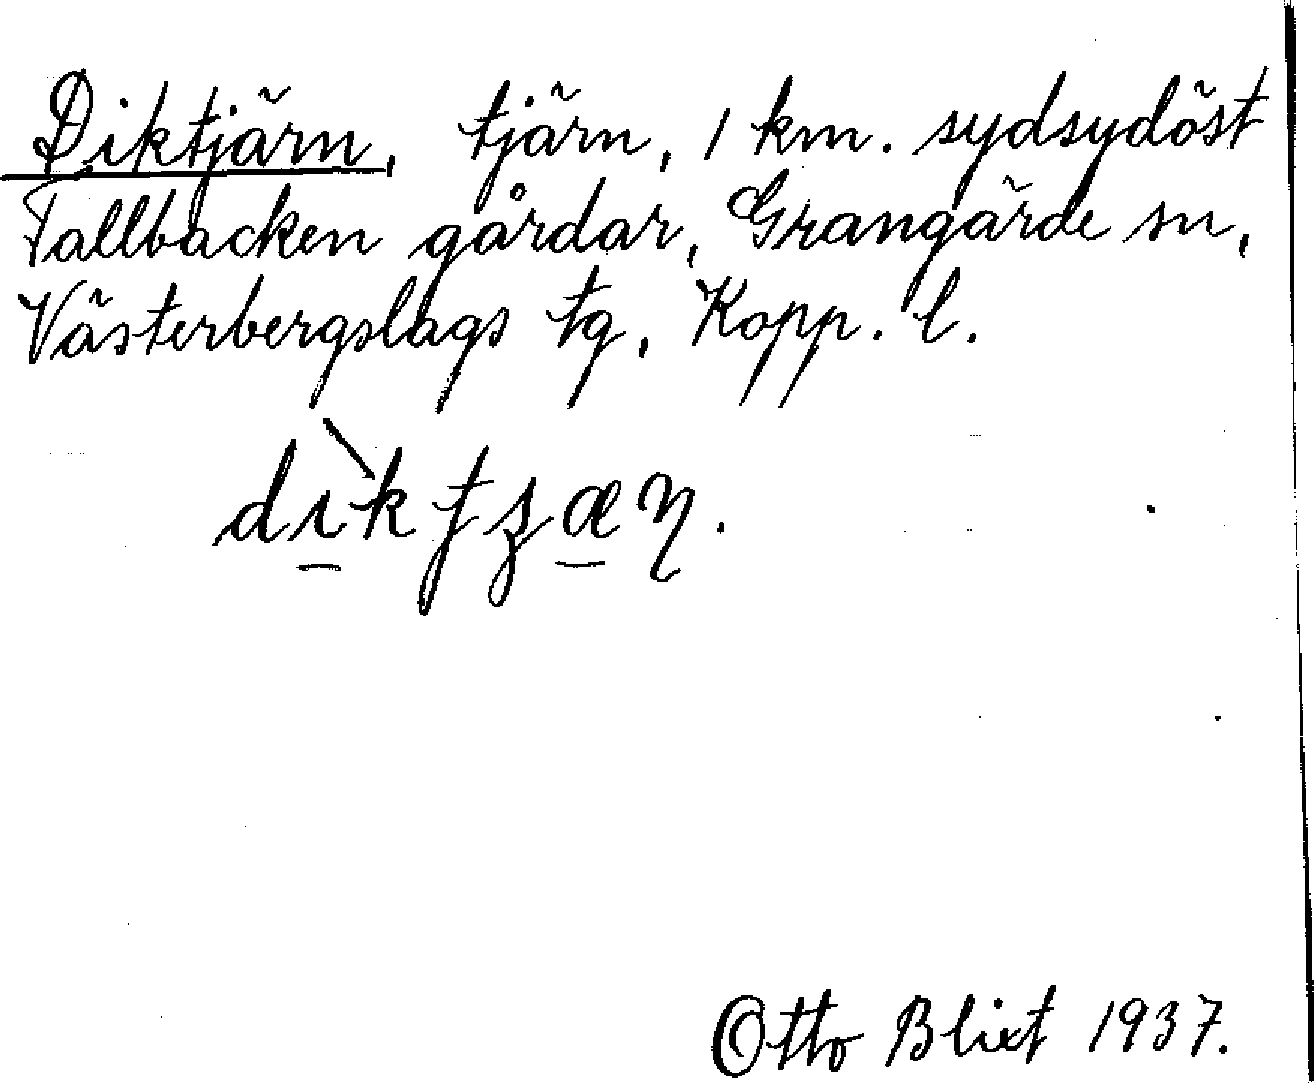 Diktjärn, tjärn, 1 km. sydsydöst
Tallbacken gårdar, Grangärde sn,
Västerbergslags tg, Kopp. l.
Otto Blixt 1937.